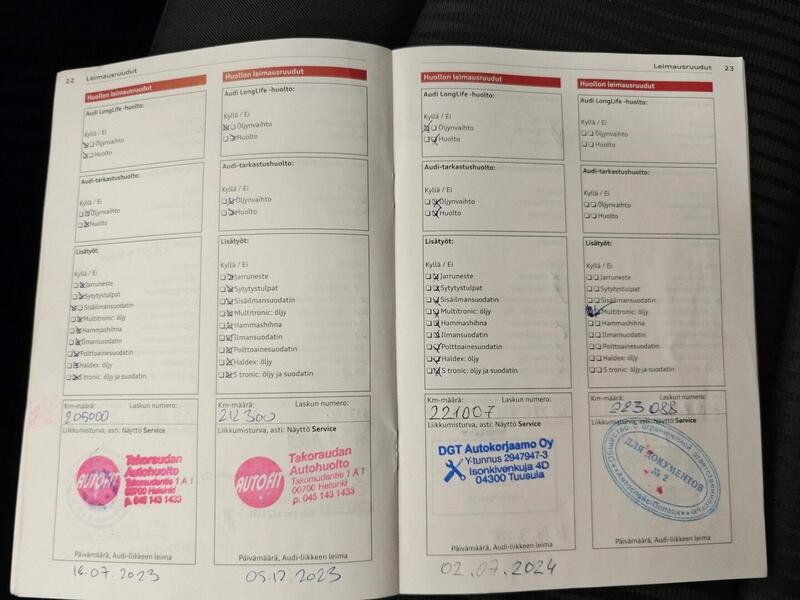 22 Leimausruudut
Huollon leimausruudut
Audi LongLife -huolto:
Kyllä / Ei
Öljynvaihto
Huolto
Audi-tarkastushuolto:
Kyllä / Ei
Öljynvaihto
Huolto
Lisätyöt:
Kyllä / Ei
Jarruneste
Sytytystulpat
Sisäilmansuodatin
Multitronic: öljy
Hammashihna
Ilmansuodatin
Polttoainesuodatin
Haldex: öljy
S tronic: öljy ja suodatin
Km-määrä: Laskun numero:
205000
Liikkumisturva, asti: Näyttö Service
AUTOFIT
Takoraudan
Autohuolto
Takomudantie 1 A 1
00700 Helsinki
p. 045 143 1433
Päivämäärä, Audi-liikkeen leima
16.07.2023
Huollon leimausruudut
Audi LongLife -huolto:
Kyllä / Ei
Öljynvaihto
Huolto
Audi-tarkastushuolto:
Kyllä / Ei
Öljynvaihto
Huolto
Lisätyöt:
Kyllä / Ei
Jarruneste
Sytytystulpat
Sisäilmansuodatin
Multitronic: öljy
Hammashihna
Ilmansuodatin
Polttoainesuodatin
Haldex: öljy
S tronic: öljy ja suodatin
Km-määrä: Laskun numero:
212300
Liikkumisturva, asti: Näyttö Service
AUTOFIT
Takoraudan
Autohuolto
Takoraudantie 1 A 1
00700 Helsinki
p. 045 143 1433
Päivämäärä, Audi-liikkeen leima
05.12.2023
Leimausruudut 23
Huollon leimausruudut
Audi LongLife -huolto:
Kyllä / Ei
Öljynvaihto
Huolto
Audi-tarkastushuolto:
Kyllä / Ei
Öljynvaihto
Huolto
Lisätyöt:
Kyllä / Ei
Jarruneste
Sytytystulpat
Sisäilmansuodatin
Multitronic: öljy
Hammashihna
Ilmansuodatin
Polttoainesuodatin
Haldex: öljy
S tronic: öljy ja suodatin
Km-määrä: Laskun numero:
221007
Liikkumisturva, asti: Näyttö Service
DGT Autokorjaamo Oy
Y-tunnus 2947947-3
Isonkivenkuja 4D
04300 Tuusula
Päivämäärä, Audi-liikkeen leima
02.07.2024
Huollon leimausruudut
Audi LongLife -huolto:
Kyllä / Ei
Öljynvaihto
Huolto
Audi-tarkastushuolto:
Kyllä / Ei
Öljynvaihto
Huolto
Lisätyöt:
Kyllä / Ei
Jarruneste
Sytytystulpat
Sisäilmansuodatin
Multitronic: öljy
Hammashihna
Ilmansuodatin
Polttoainesuodatin
Haldex: öljy
S tronic: öljy ja suodatin
Km-määrä: Laskun numero:
223 088
Liikkumisturva, asti: Näyttö Service
Общество с ограниченной ответственностью
ДЛЯ ДОКУМЕНТОВ
№ 2
Päivämäärä, Audi-liikkeen leima